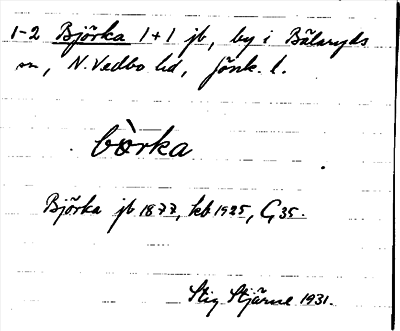 1-2 Björka 1+1 jb, by i Bälaryds
sn, N. Vedbo hd, Jönk. l.
bòrka
Björka jb 1877, kb 1925, G35.
Stig Stjärne 1931.